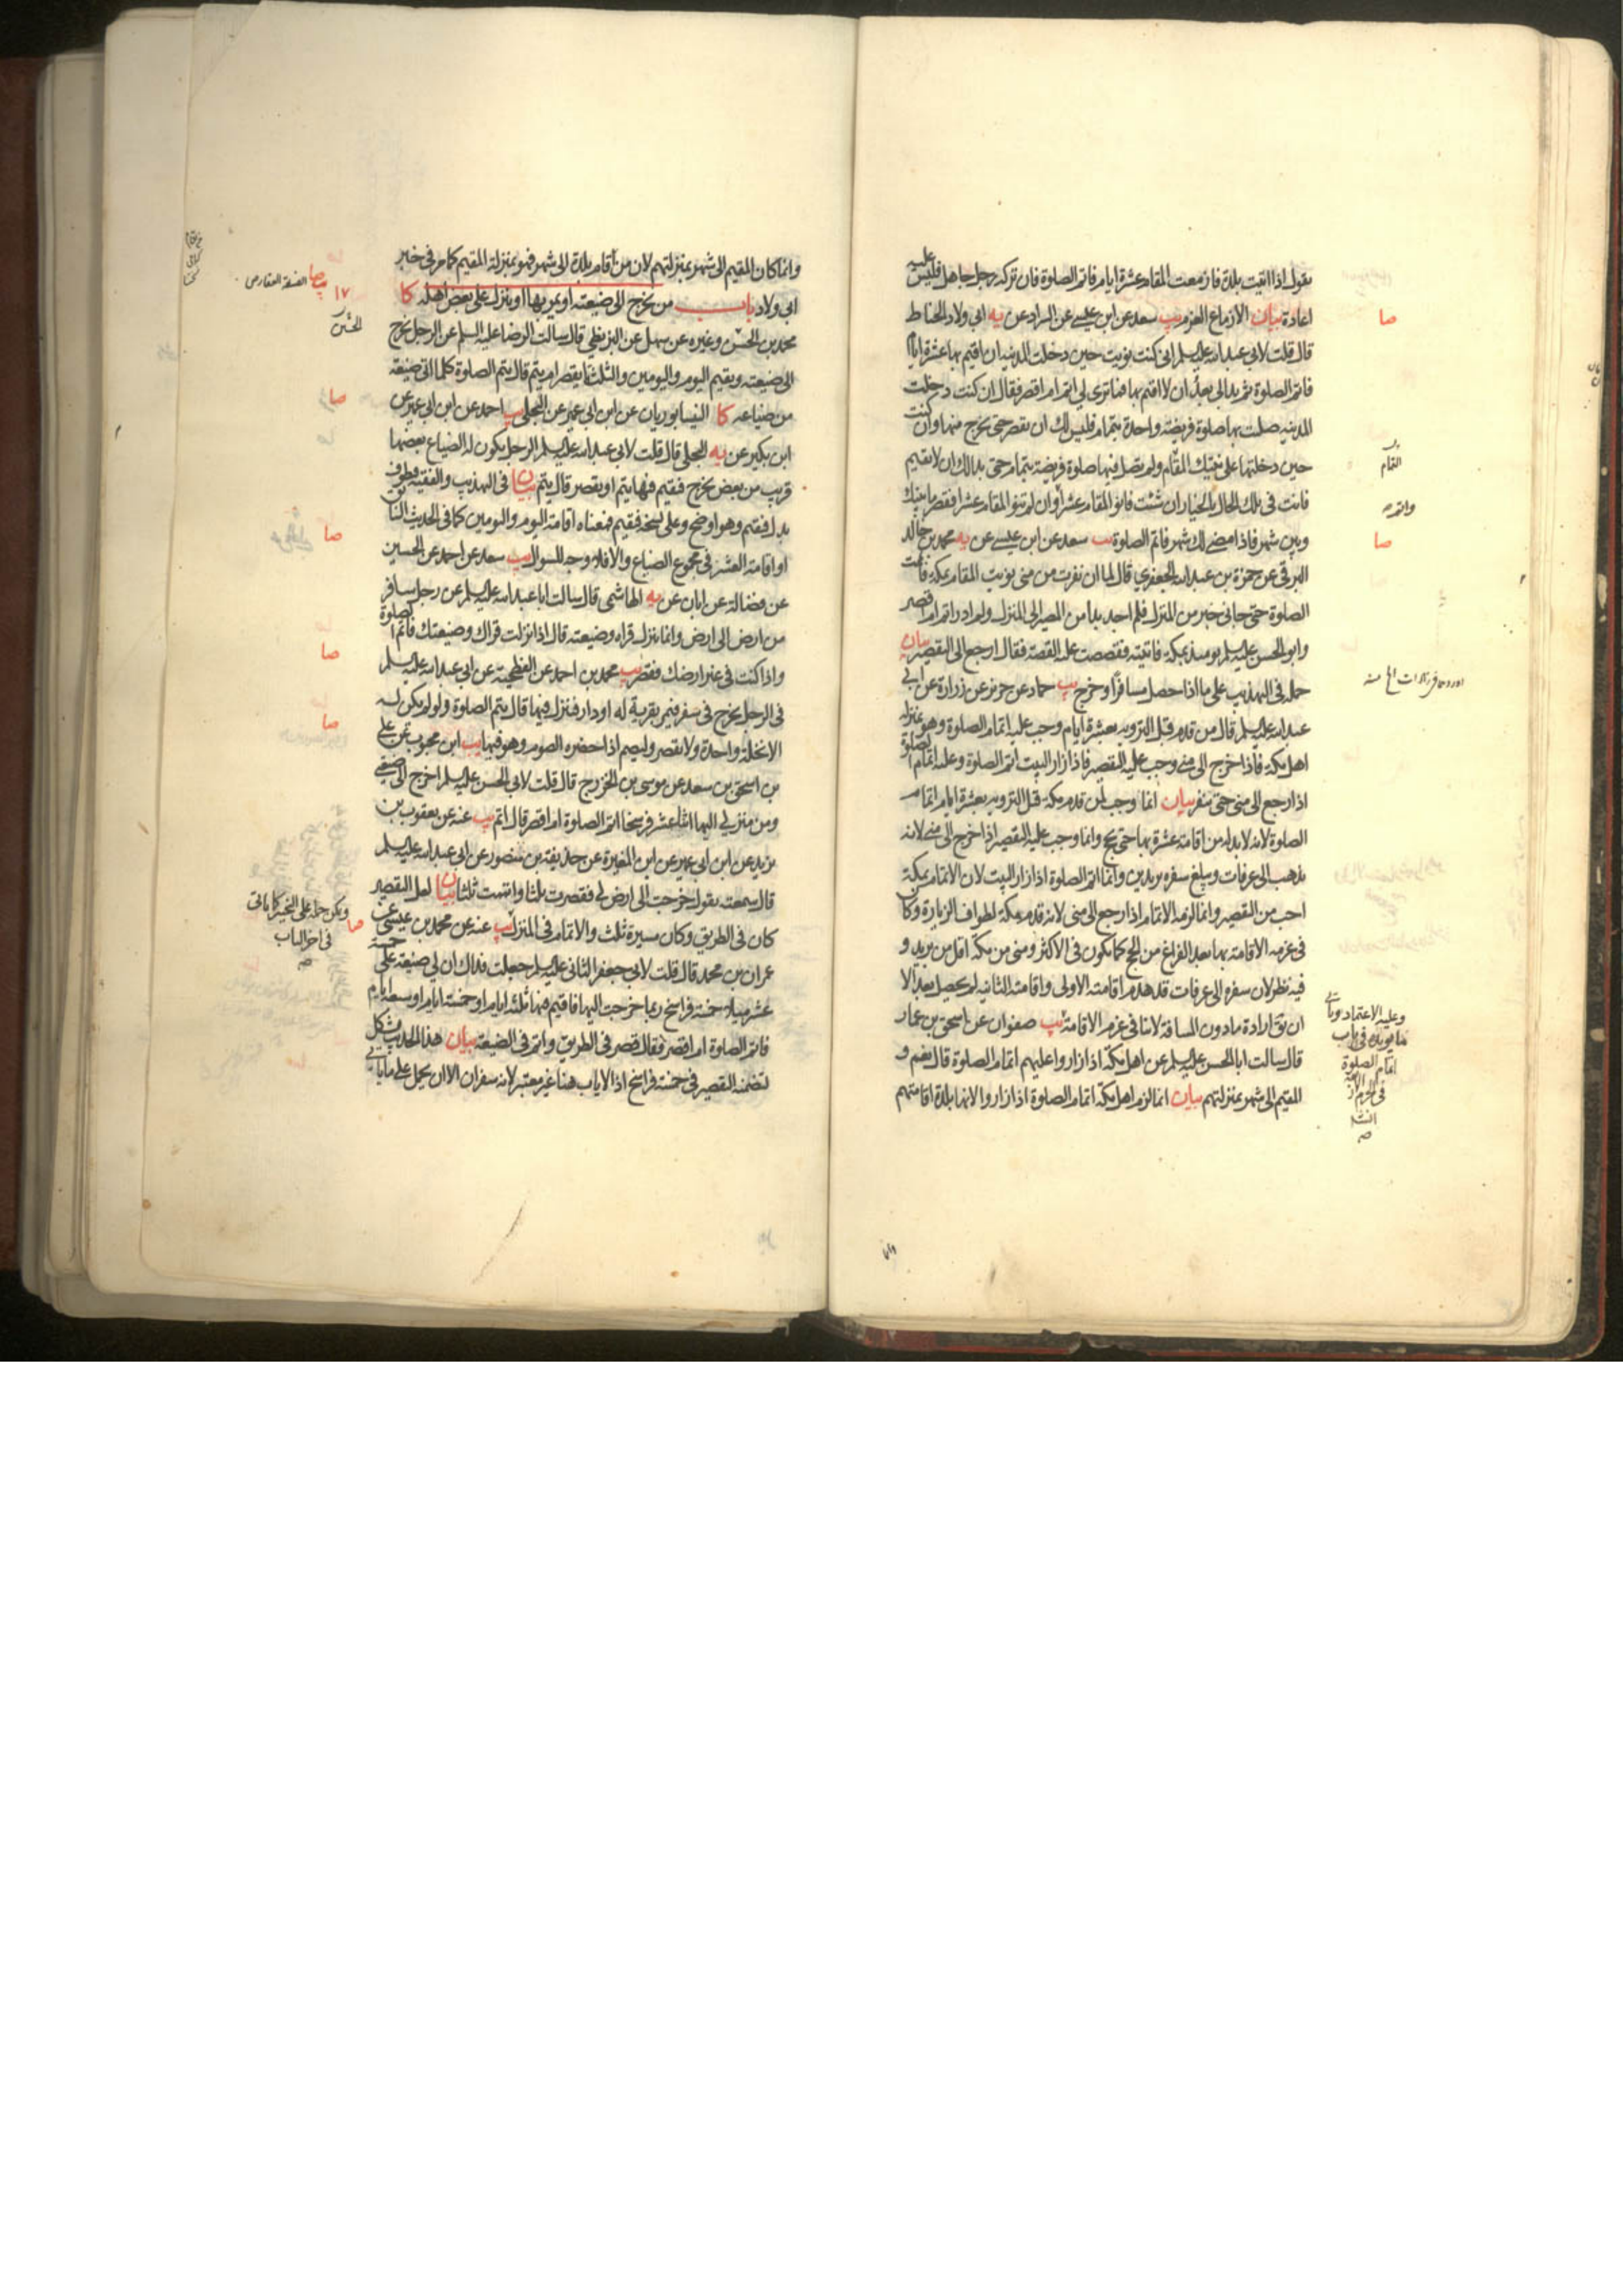 يقول اذا اتيت بلدة فازمعت المقام عشرة ايام فاتم الصلوة فان تركه رجل جاهل فليس عليه
اعادة بيان الازماع العزم يب سعد عن ابن عيسى عن السراد عن يه ابي ولاد الحناط
قال قلت لابي عبد الله عليه السلم اني كنت نويت حين دخلت المدينه ان اقيم بها عشرة ايام
فاتم الصلوة ثم بدا لي بعد أن لا اقيم بها فما ترى لي اتم ام اقصر فقال ان كنت دخلت
المدينه صليت بها صلوة فريضته واحدة بتمام فليس لك ان تقصر حتى تخرج منها وان كنت
حين دخلتها على نيتك المقام ولم تصل فيها صلوة فريضة بتمام حتى بدا لك ان لا تقيم
فانت في تلك الحال بالخيار ان شئت فانو المقام عشرا وان لم تنو المقام عشرا فقصر ما بينك
وبين شهر فاذا مضى لك شهر فاتم الصلوة يب سعد عن ابن عيسى عن يه محمد بن خالد
البرقي عن حمزة بن عبد الله الجعفري قال لما ان نفرت من منى نويت المقام بمكة فاتممت
الصلوة حتى جاني خبر من المنزل فلم اجد بدا من المصير الى المنزل ولم ادر اتم ام اقصر
وابو الحسن عليه السلم يومئذ بمكة فاتيته فقصصت عليه القصة فقال ارجع الى التقصير بيان
حمله في التهذيب على ما اذا حصل مسافرا وخرج يب حماد عن حريز عن زرارة عن ابي
عبد الله عليه السلم قال من قدم قبل الترويه بعشرة ايام وجب عليه اتمام الصلوة وهو بمنزله
اهل مكة فاذا خرج الى منى وجب عليه التقصير فاذا زار البيت اتم الصلوة وعليه اتمام الصلوة
اذا رجع الى منى حتى ينفر بيان انما وجب لمن قدم مكة قبل الترويه بعشرة ايام اتمام
الصلوة لانه لا بد له من اقامة عشرة بها حتى يحج وانما وجب عليه التقصير اذا خرج الى منى لانه
يذهب الى عرفات ويبلغ سفره بريدين وانما اتم الصلوة اذا زار البيت لان الاتمام بمكة
احب من التقصير وانما لزمه الاتمام اذا رجع الى منى لانه قدم مكة لطواف الزيارة وكان
في عزمه الاقامة بها بعد الفراغ من الحج كما يكون في الاكثر ومنى من مكة اقل من بريد و
فيه نظر لان سفره الى عرفات قد هدم اقامته الاولى واقامته الثانيه لم تحصل بعد الا
ان يق ارادة ما دون المسافة لا تنافي عزم الاقامة يب صفوان عن اسحق بن عمار
قال سالت ابا الحسن عليه السلم عن اهل مكة اذا زاروا عليهم اتمام الصلوة قال نعم و
المقيم الى شهر بمنزلتهم بيان انما لزم اهل مكة اتمام الصلوة اذا زاروا لانها بلدة اقامتهم
صا
التمام
صا
وعليه الاعتماد وياتي
ما يويده في باب
اتمام الصلوة
في الحرم
وانما كان المقيم الى شهر بمنزلتهم لان من أقام بلدة الى شهر فهو بمنزلة المقيم كما مر في خبر
ابي ولاد باب من يخرج الى ضيعته او يمر بها او ينزل على بعض اهله كا
محمد بن الحسن وغيره عن سهل عن البزنطي قال سالت الرضا عليه السلم عن الرجل يخرج
الى ضيعته ويقيم اليوم واليومين والثلثة ايقصر ام يتم قال يتم الصلوة كلما اتى ضيعة
من ضياعه كا النيسابوريان عن ابن ابي عمير عن البجلي يب احمد عن ابن ابي عمير عن
ابن بكير عن يه البجلي قال قلت لابي عبد الله عليه السلم الرجل يكون له الضياع بعضها
قريب من بعض يخرج فيقيم فيها يتم او يقصر قال يتم بيان في التهذيب والفقيه فيطوف
بدل فيقيم وهو اوضح وعلى نسخة فيقيم فمعناه اقامة اليوم واليومين كما في الحديث السابق
او اقامة العشر في مجموع الضياع والا فلا وجه للسوال يب سعد عن احمد عن الحسين
عن فضالة عن ابان عن يه الهاشمي قال سالت ابا عبد الله عليه السلم عن رجل سافر
من ارض الى ارض وانما ينزل قراه وضيعته قال اذا نزلت قراك وضيعتك فاتم الصلوة
واذا كنت في غير ارضك فقصر يب محمد بن احمد عن الفطحية عن ابي عبد الله عليه السلم
في الرجل يخرج في سفر فيمر بقرية له او دار فينزل فيها قال يتم الصلوة ولو لم يكن له
الا نخلة واحدة ولا يقصر وليصم اذا حضره الصوم وهو فيها يب ابن محبوب عن علي
بن اسحق بن سعد عن موسى بن الخزرج قال قلت لابي الحسن عليه السلم اخرج الى ضيعتي
ومن منزلي اليها اثنا عشر فرسخا اتم الصلوة ام اقصر قال اتم يب عنه عن يعقوب بن
يزيد عن ابن ابي عمير عن ابن المغيرة عن حذيفة بن منصور عن ابي عبد الله عليه السلم
قال سمعته يقول خرجت الى ارض لي فقصرت ثلثا واتممت ثلثا بيان لعل التقصير
كان في الطريق وكان مسيرة ثلث والاتمام في المنزل يب عنه عن محمد بن عيسى عن
عمران بن محمد قال قلت لابي جعفر الثاني عليه السلم جعلت فداك ان لي ضيعة على خمسة
عشر ميلا خمسة فراسخ ربما خرجت اليها فاقيم فيها ثلثة ايام او خمسة ايام او سبعة ايام
فاتم الصلوة ام اقصر فقال قصر في الطريق واتم في الضيعة بيان هذا الحديث مشكل
لتضمنه التقصير في خمسة فراسخ اذ الاياب هنا غير معتبر لانه سفران الا ان يحمل على ما ياتي
١٧
صا
صا
صا
صا
صا
ويمكن حمله على التخيير كما ياتي
في اخر الباب